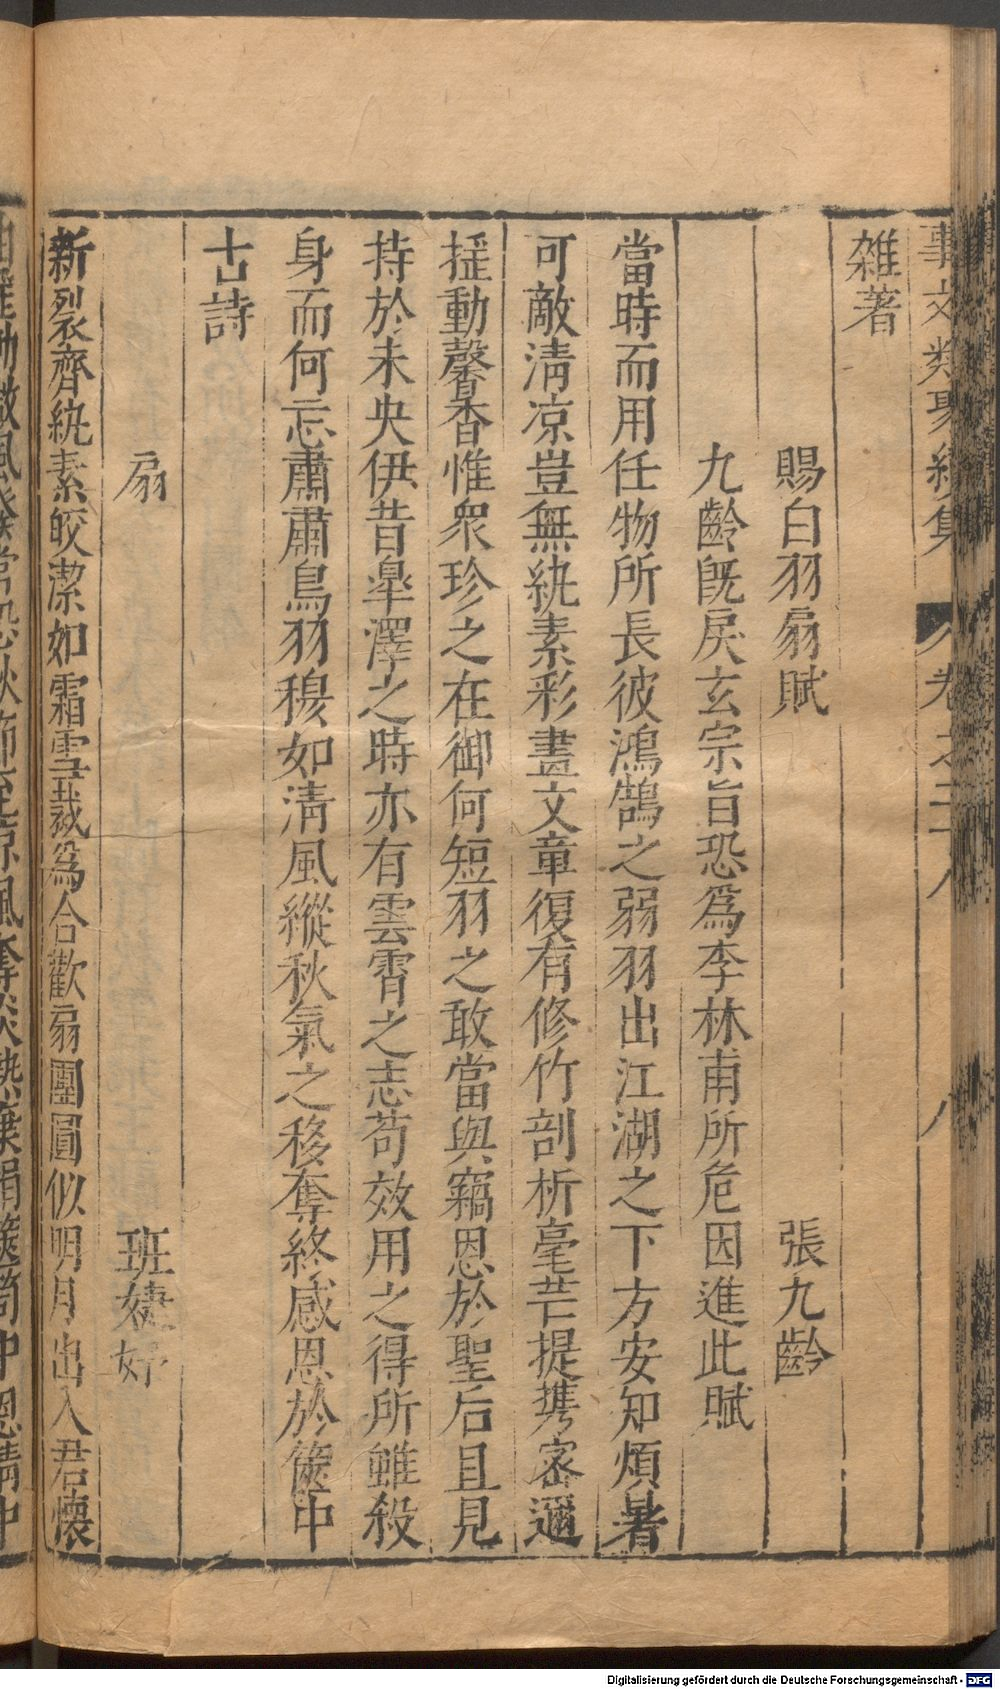 事文類聚續集 卷之二十八 八
雜著
賜白羽扇賦 張九齡
九齡旣戾玄宗旨恐爲李林甫所危因進此賦
當時而用任物所長彼鴻鵠之弱羽出江湖之下方安知煩暑
可敵淸凉豈無紈素彩畫文章復有修竹剖析毫芒提携密邇
搖動馨香惟衆珍之在御何短羽之敢當與竊恩於聖后且見
持於未央伊昔臯澤之時亦有雲霄之志苟效用之得所雖殺
身而何忘肅肅鳥羽穆如淸風縱秋氣之移奪終感恩於篋中
古詩
扇 班婕妤
新裂齊紈素皎潔如霜雪裁爲合歡扇團圓似明月出入君懷
Digitalisierung gefördert durch die Deutsche Forschungsgemeinschaft - DFG